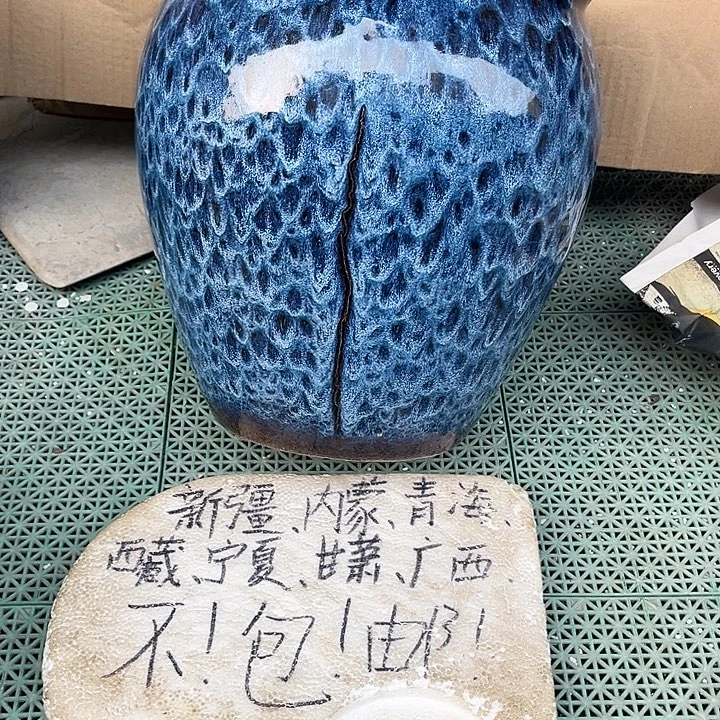 新疆、内蒙、青海、
西藏、宁夏、甘萧、广西.
不！包！邮！
very